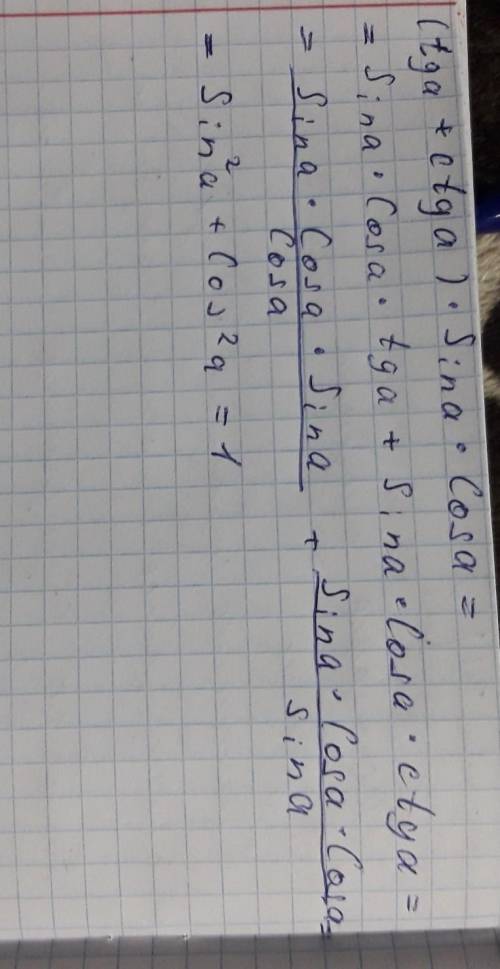 (tga + ctga) · Sina · Cosa =
= Sina · Cosa · tga + Sina · Cosa · ctga =
= Sina · Cosa · Sina / Cosa + Sina · Cosa · Cosa / Sina =
= Sin²a + Cos²a = 1